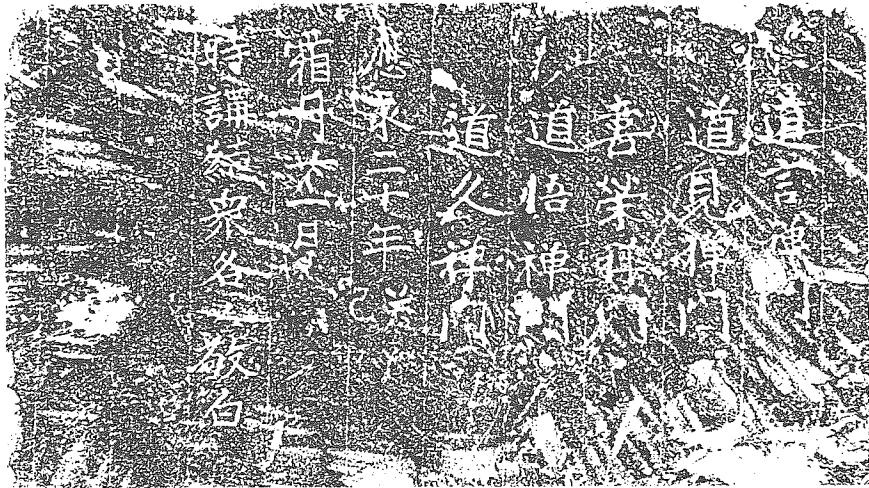 道言禅門
道見禅門
栄禅門
道悟禅門
道久禅門
應永二十年癸巳
霜月 一日
時講結衆各敬白